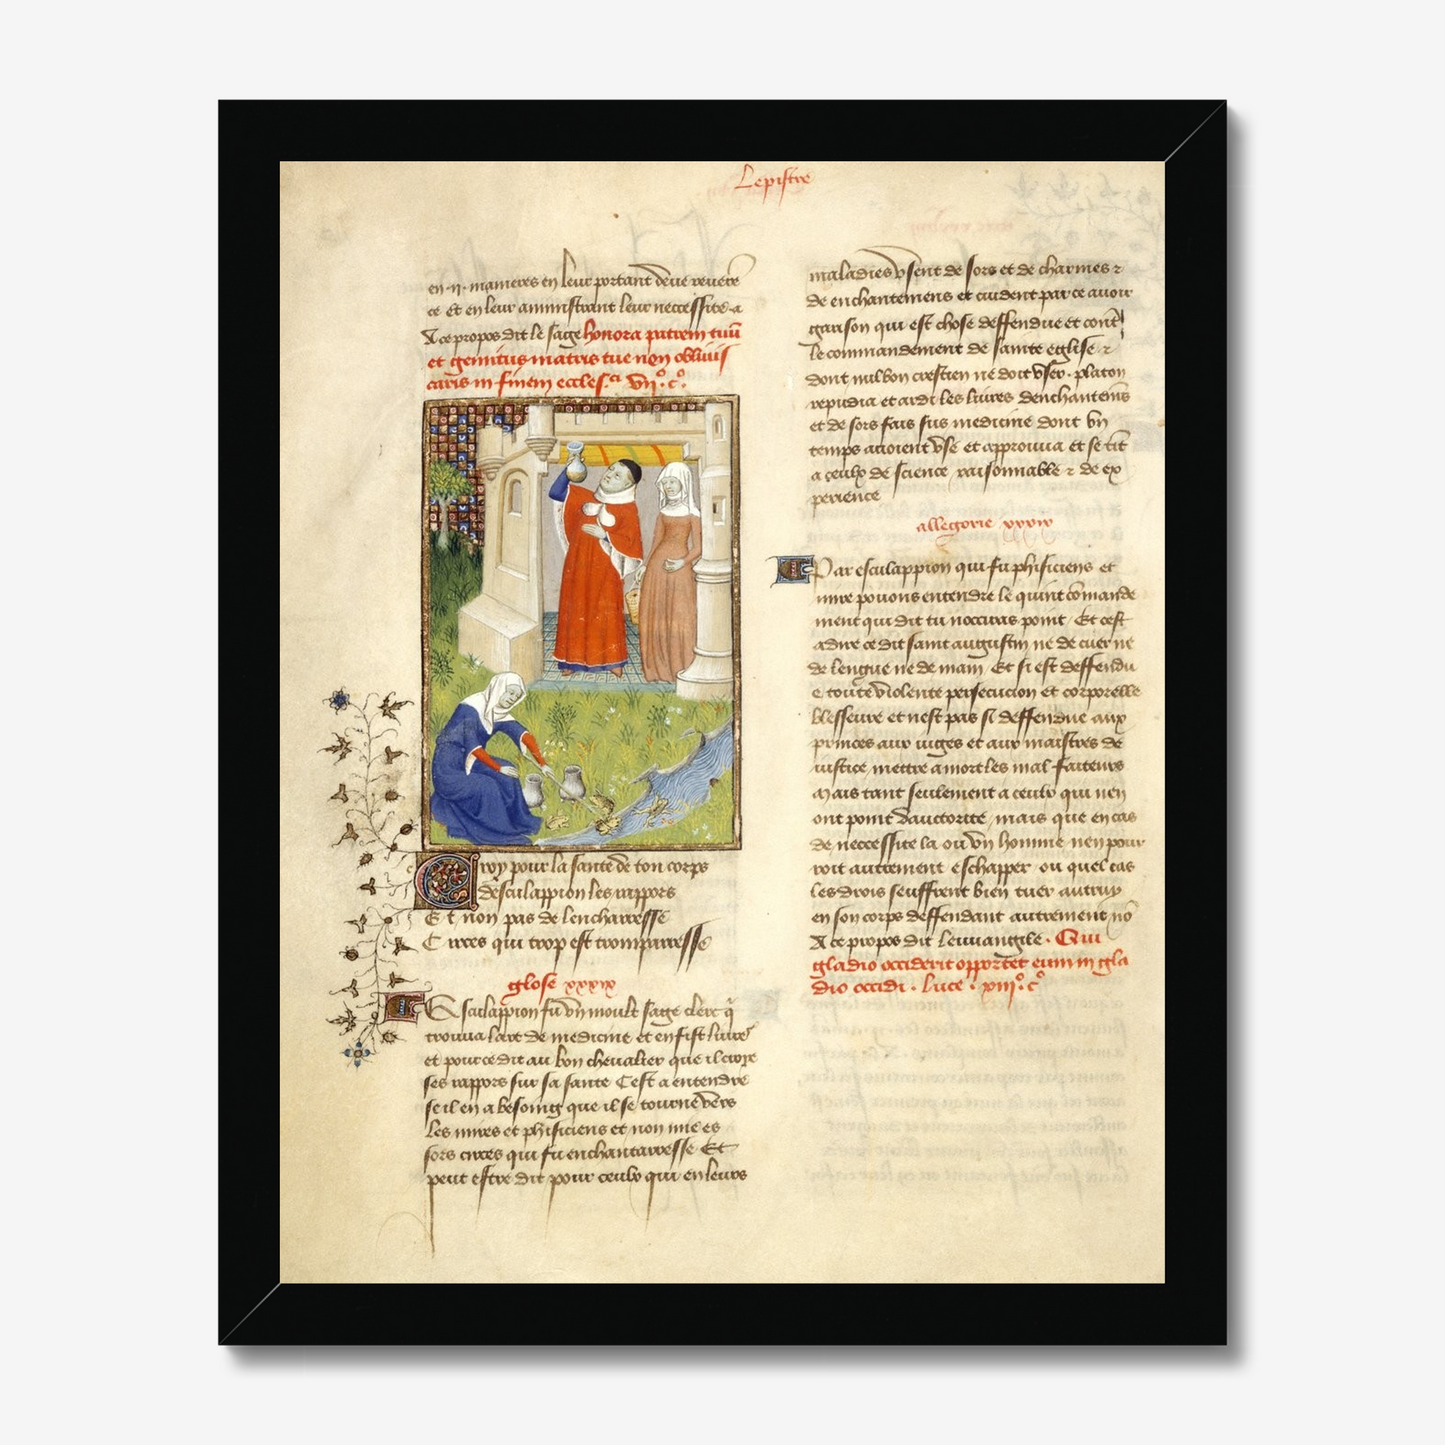 Lepistre
en .ij. manieres en leur portant deue reuere
ce Et en leur aminstrant leur necessite. a
A ce propos dit le sage honora patrem tuū
et gemitus matris tue non obliuis
caris in finem eccles.ᵃ vijº. cº.
Croy pour la sante de ton corps
desculappion les rappors
Et non pas de lencharresse
Circes qui trop est tromparresse
glose xxxix
Esculappion fu vn moult sage clerc q̄
trouua lart de medicine et en fist liures
et pour ce dit au bon cheualier que il croye
ses rappors sur sa sante Cest a entendre
se il en a besoing que il se tourne vers
les mires et phisiciens et non mie es
sors circes qui fu enchantarresse Et
peut estre dit pour ceulx qui en leurs
maladies vsent de sors et de charmes ⁊
de enchantemens et cuident par ce auoir
garison qui est chose deffendue et contʳ
le commandement de sainte eglise ⁊
dont nul bon crestien ne doit vser. platon
repudia et ardi les liures denchantemēs
et de sors fais sus medicine dont vn
temps auoient vse et approuua et se tīt
a ceulx de science raisonnable ⁊ de ex
perience
allegorie xxxix
Par esculappion qui fu phisiciens et
mire pouons entendre le quint cōmande
ment qui dit tu nocciras point Et cest
adire ce dit saint augustin ne de cuer ne
de lengue ne de main Et si est deffendu
e toute violente persecucion et corporelle
blesseure et nest pas si deffendue aux
princes aux iuges et aux maistres de
iustice mettre a mort les mal faiteurs
Mais tant seulement a ceulx qui nen
ont point dauctorite, mais que en cas
de neccessite la ou vn homme nen pour
roit autrement eschapper ou quel cas
les drois seuffrent bien tuer autruy
en son corps deffendant autrement nō
A ce propos dit leuuangile. Qui
gladio occiderit opportet eum in gla
dio occidi. luce. xiijº. cº